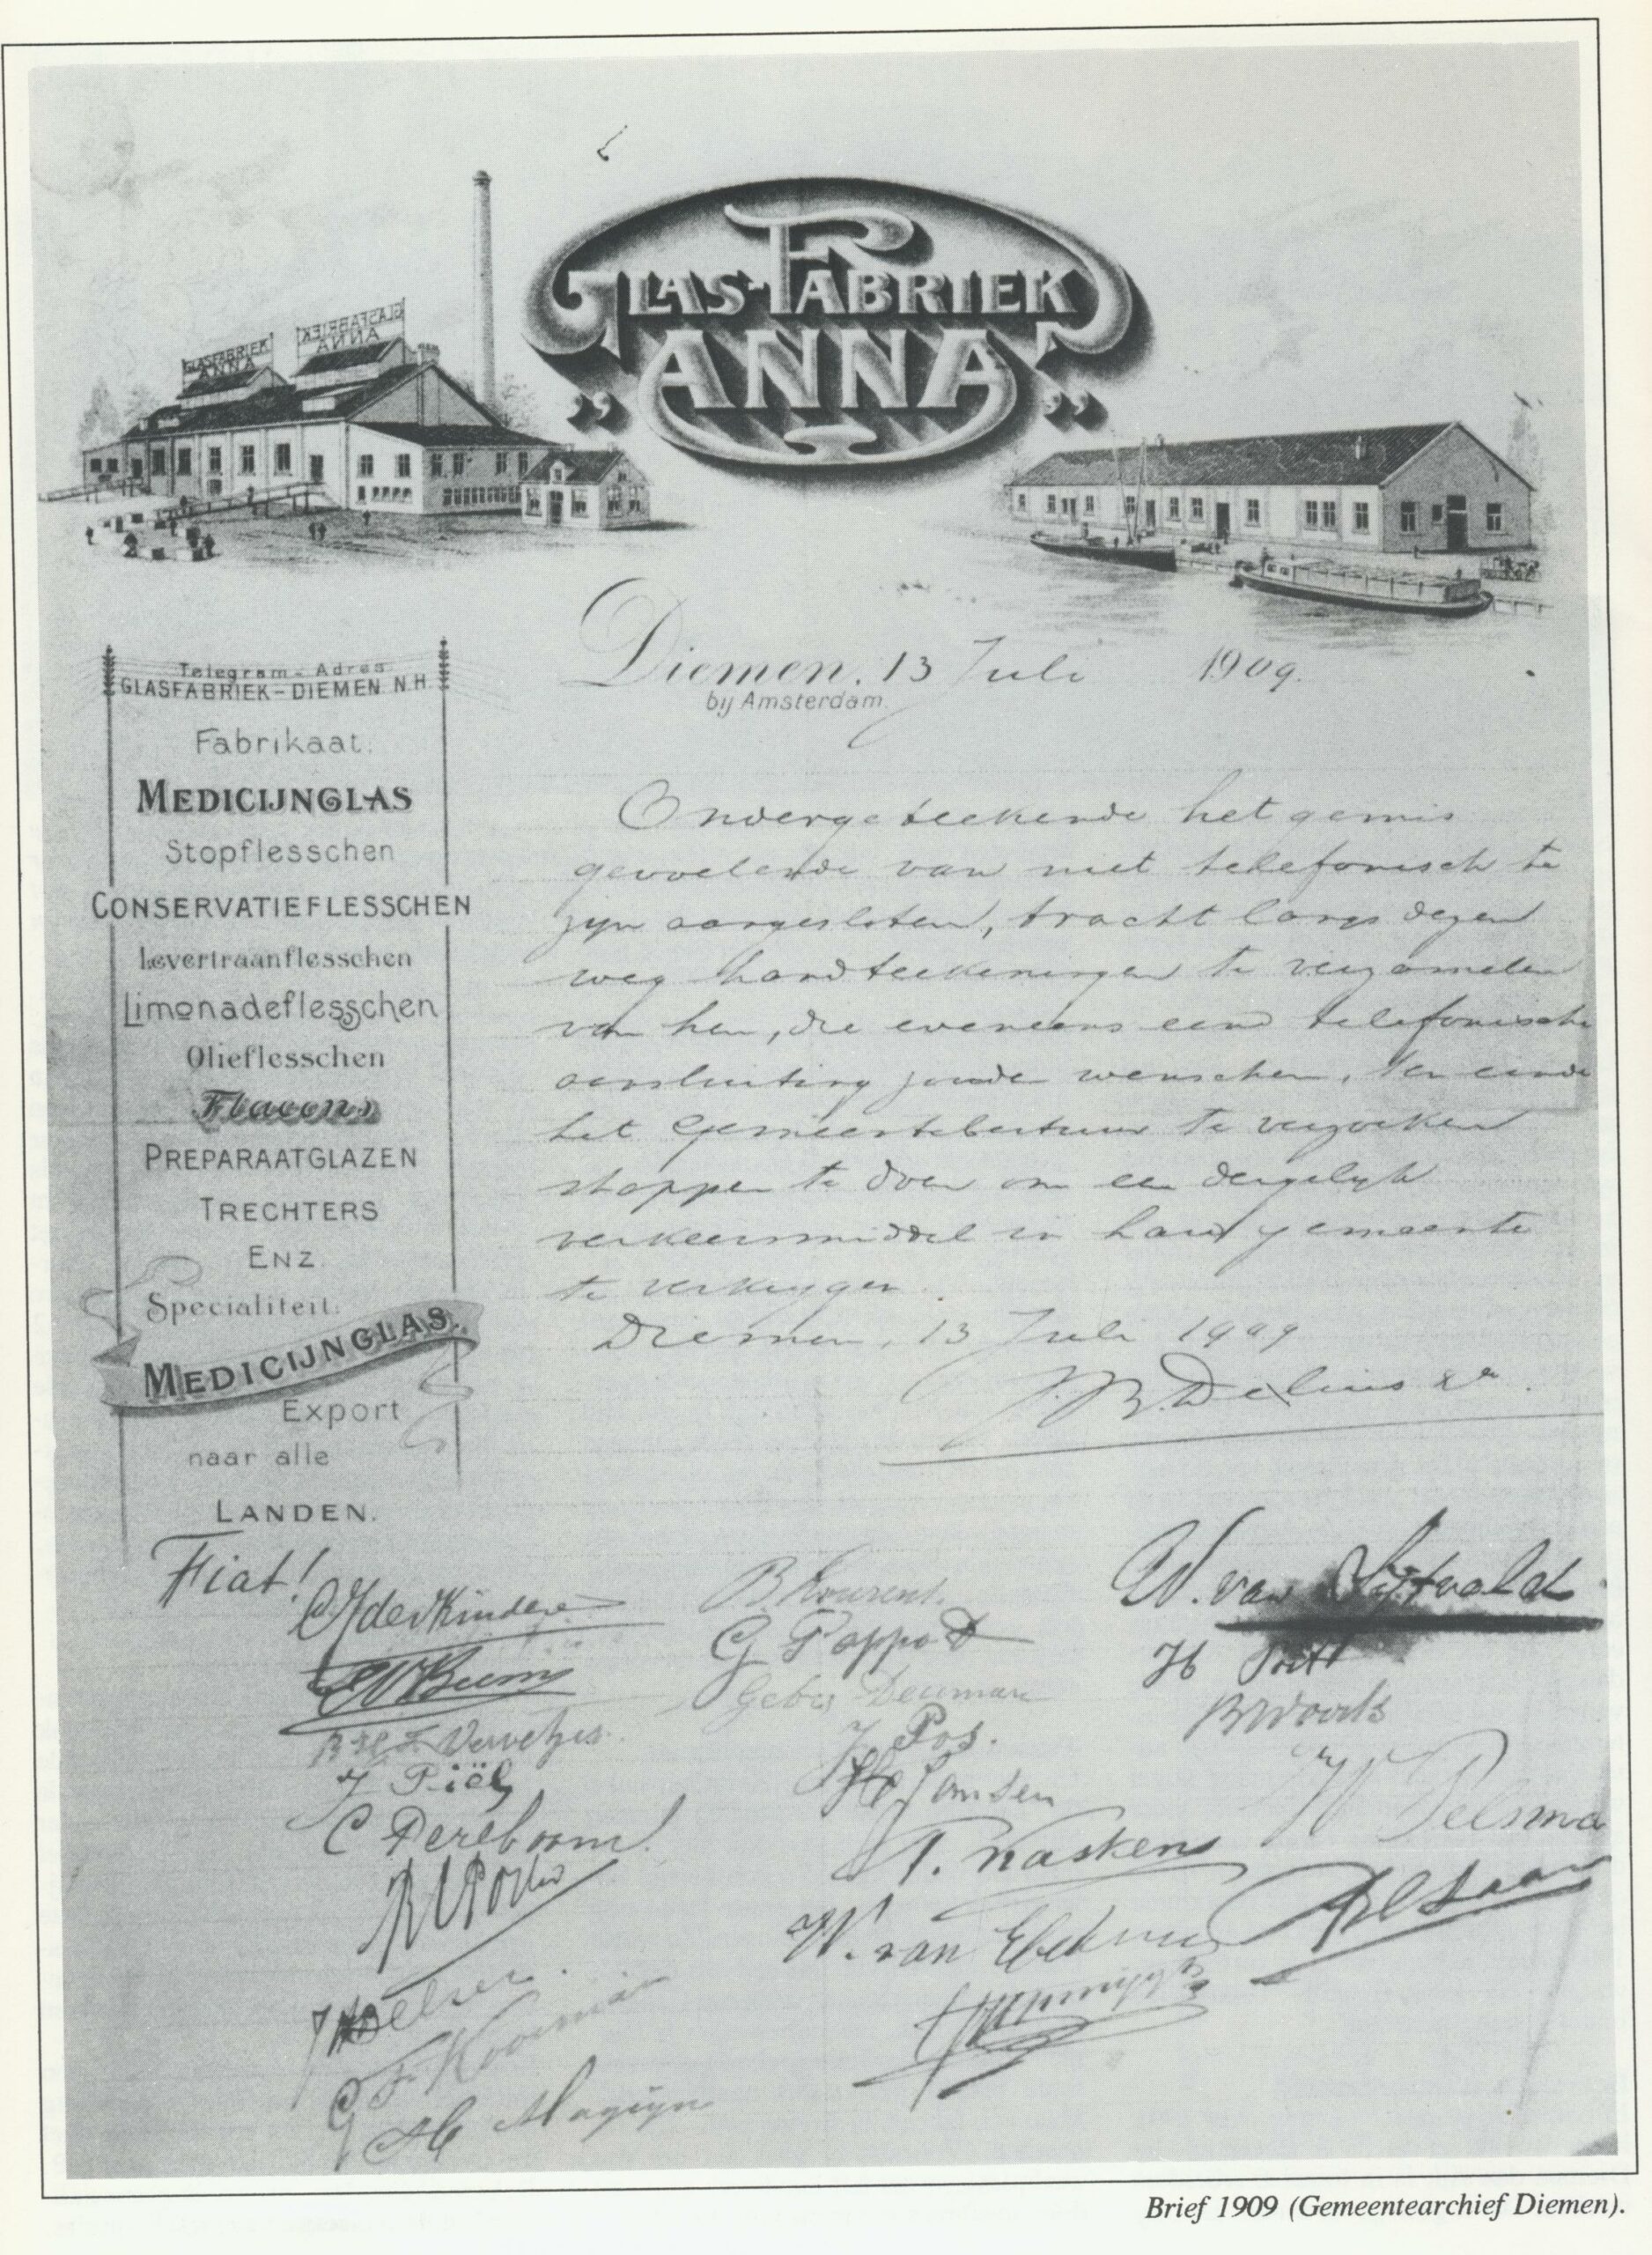 GLASFABRIEK
ANNA
GLASFABRIEK
ANNA
GLAS-FABRIEK
„ANNA”
Diemen, 13 Juli 1909.
bij Amsterdam
Telegram-Adres
GLASFABRIEK-DIEMEN N.H.
Fabrikaat:
MEDICIJNGLAS
Stopflesschen
CONSERVATIEFLESSCHEN
Levertraanflesschen
Limonadeflesschen
Olieflesschen
Flacons
PREPARAATGLAZEN
TRECHTERS
ENZ.
Specialiteit:
MEDICIJNGLAS.
Export
naar alle
LANDEN.
Ondergeteekende het gemis
gevoelende van niet telefonisch te
zijn aangesloten, tracht langs dezen
weg handteekeningen te verzamelen
van hen, die eveneens eene telefonische
aansluiting zouden wenschen, ten einde
het Gemeentebestuur te verzoeken
stappen te doen om een dergelijk
verkeersmiddel in haar gemeente
te verkrijgen.
Diemen, 13 Juli 1909
J. B. Delius
Fiat!
der Kinderen
J Piël
C Pereboom
G F Kooiman
G Pappot
Gebrs Deuman
J Pos.
Jansen
T. Kaskens
W. van
W. van
H Pott
W Pelsma
Brief 1909 (Gemeentearchief Diemen).